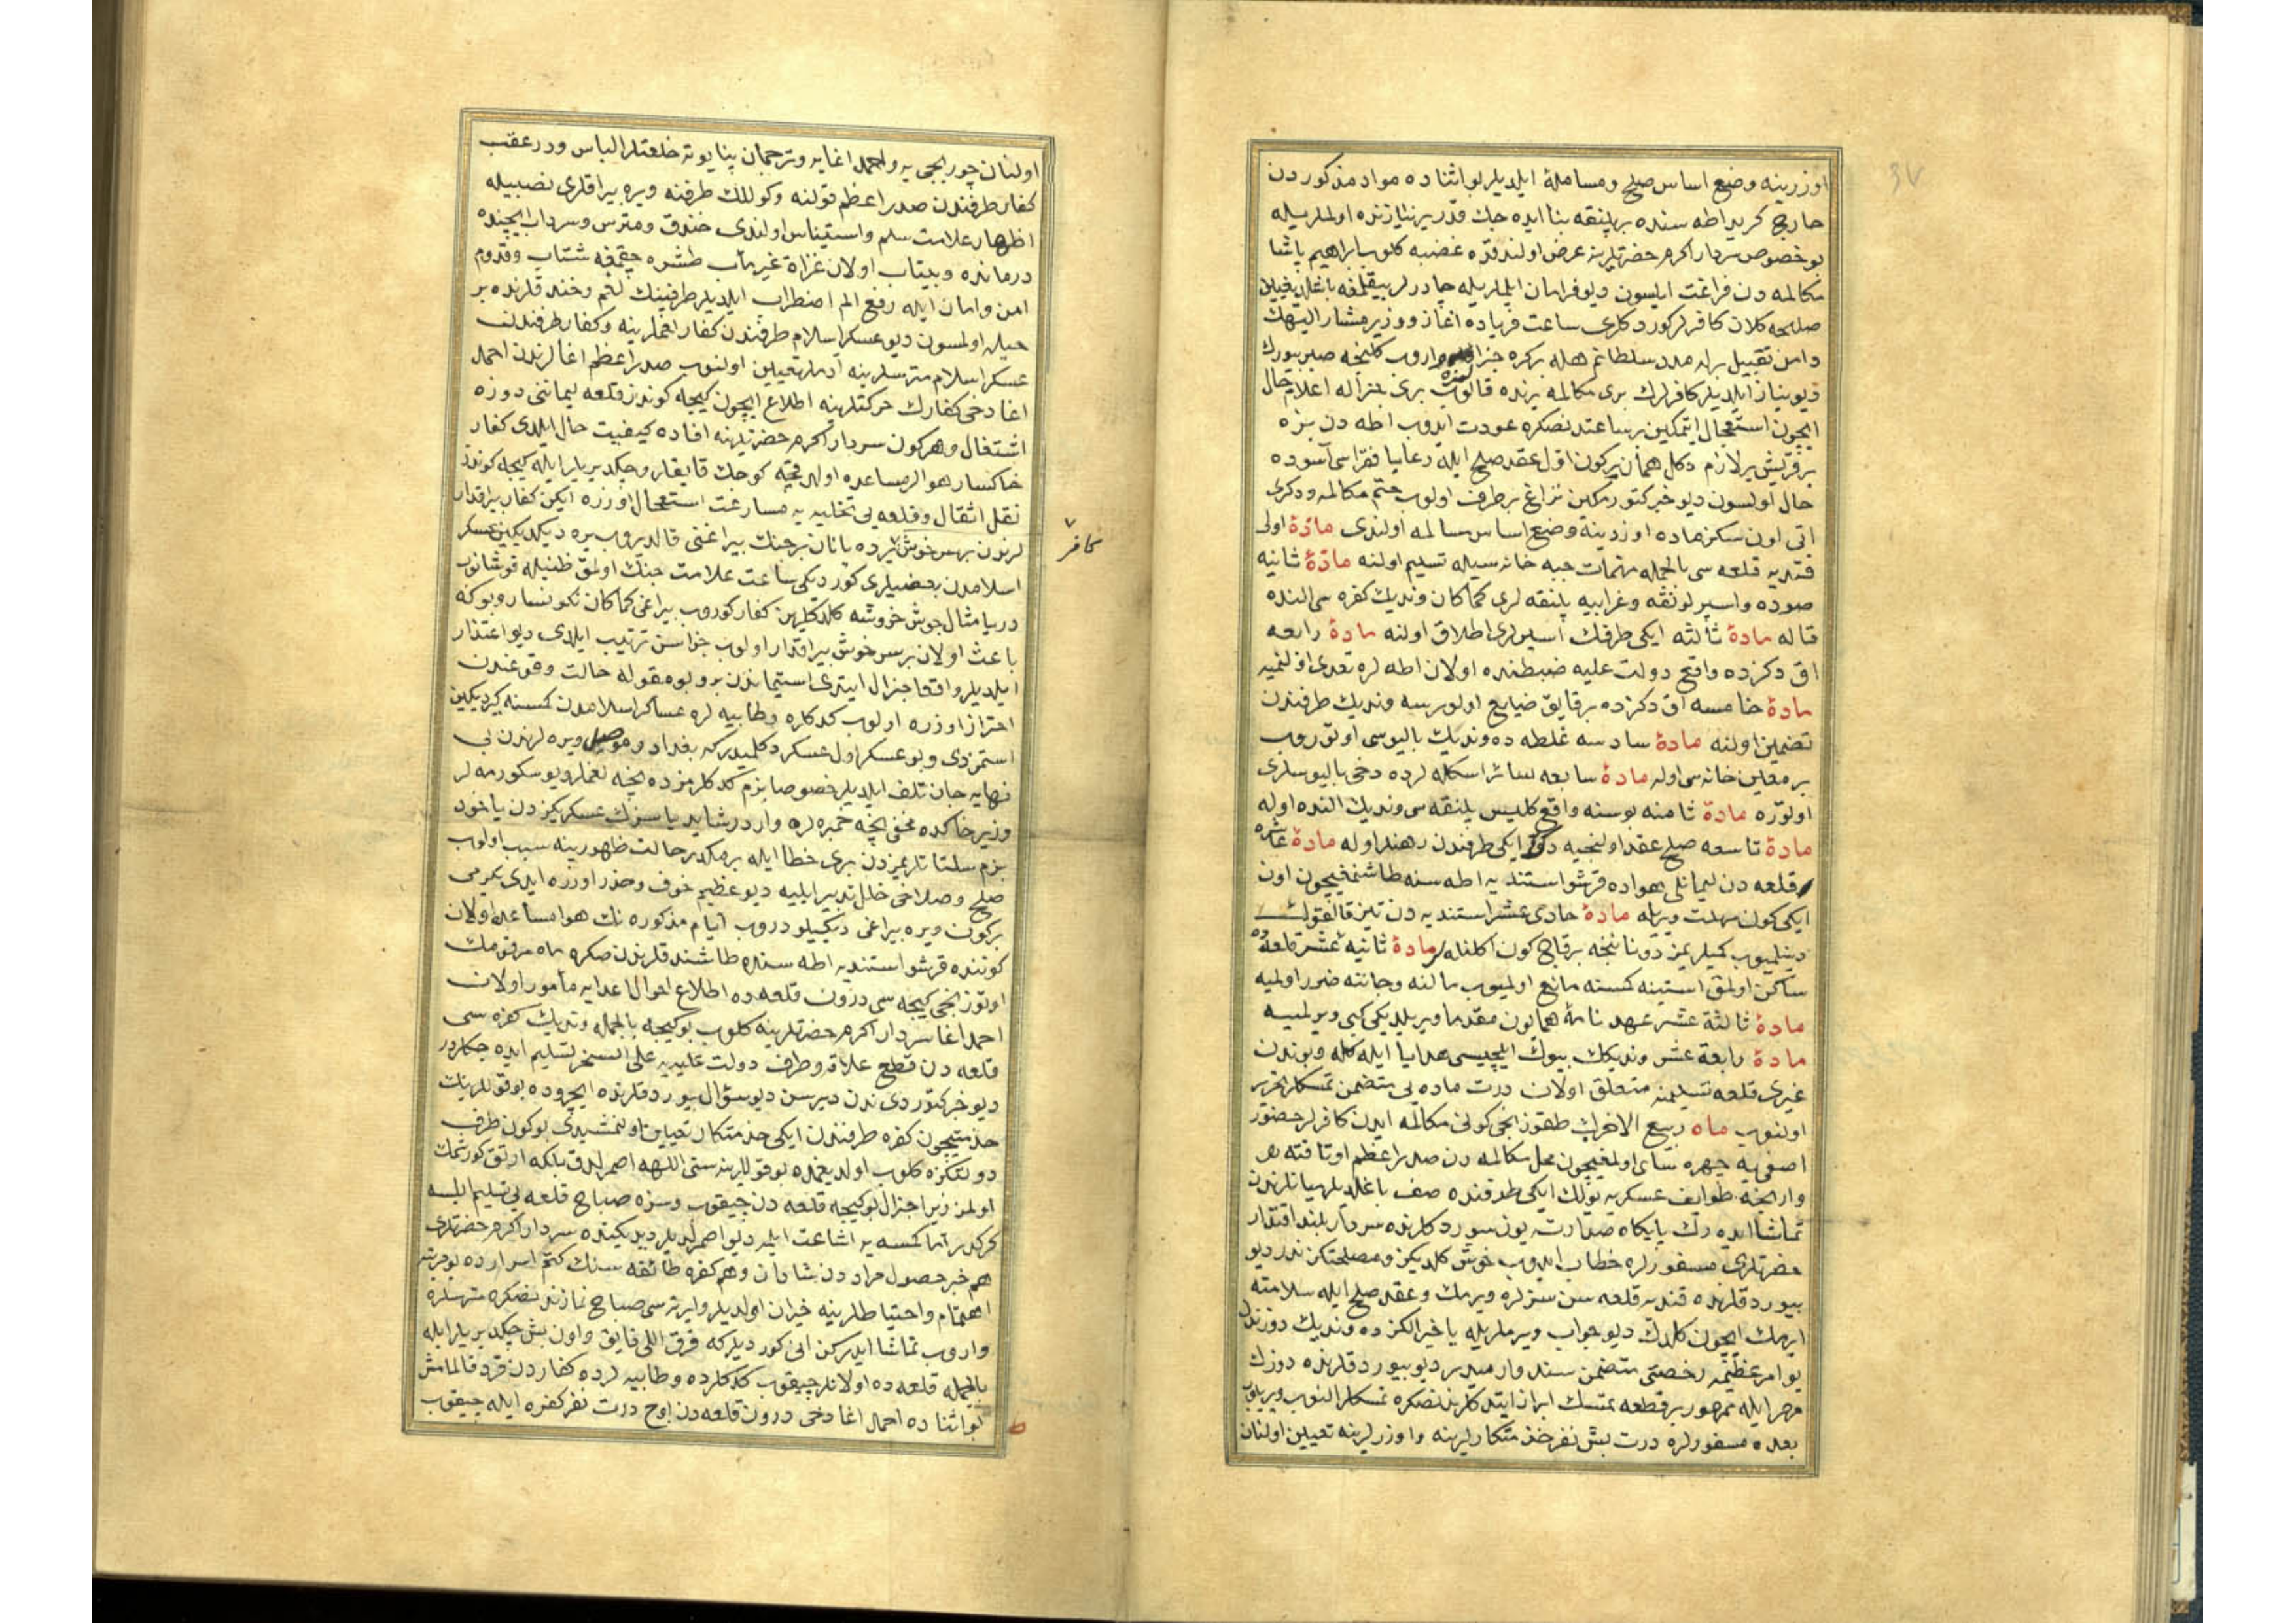 اوزرینه وضع اساس صلح ومسامله ایلدیلر بو اثناده مواد مذکوردن
خارج کرید اطه سنده بر پلنقه بنا ایده جك قدر یر نیازنده اولملریله
بو خصوص سردار اکرم حضرتلرینه عرض اولندقده غضبه کلوب ابراهیم پاشا
مکالمه دن فراغت ایلسون دیو فرمان ایلملریله چادرلر ییقلمغه باشلدیغین
صلحه کلان کافرلر کوردکلری ساعت فریاده اغاز ووزیر مشار الیهك
دامن تقبیل برله مدد سلطانم هله بر کره جنراله واروب کلنجه صبر بیورك
دیو نیاز ایلدیلر کافرلرك بری مکالمه یرنده قالوب بری جنراله اعلام حال
ایچون استعجال ایتمکین بر ساعتدنصکره عودت ایدوب اطه دن بزه
بر قریش یر لازم دکل همان بر کون اول عقد صلح ایله رعایا فقراسی آسوده
حال اولسون دیو خبر کتورمکین نزاع بر طرف اولوب ختم مکالمه ودکری
اتی اون سکز ماده اوزرینه وضع اساس مسالمه اولندی مادهٔ اولی
قندیه قلعه سی بالجمله مهمات جبه خانه سیله تسلیم اولنه مادهٔ ثانیه
صوده واسپرلونغه وغرابیه پلنقه لری کماکان وندیك کفره سی النده
قاله مادهٔ ثالثه ایکی طرفك اسیرلری اطلاق اولنه مادهٔ رابعه
اق دکزده واقع دولت علیه ضبطنده اولان اطه لره تعدی اولنمیه
مادهٔ خامسه اق دکزده بر قایق ضایع اولورسه وندیك طرفندن
تضمین اولنه مادهٔ سادسه غلطه ده وندیك بالیوسی اوتوروب
بر معین خانه سی اوله مادهٔ سابعه سائر اسکله لرده دخی بالیوسلری
اولتوره مادهٔ ثامنه بوسنه واقع کلیس پلنقه سی وندیك النده اوله
مادهٔ تاسعه صلح عقد اولنجیه دکز ایکی طرفندن رهنلر اوله مادهٔ عاشره
قلعه دن لیمانلی هواده قرشو استندیه اطه سنه طاشنمغیچون اون
ایکی کون مهلت ویریله مادهٔ حادی عشر استندیه دن تیز قالقولك
دینلمیوب کمیلریمز دونانجه بر قاچ کون اکلنله لر مادهٔ ثانیه عشر قلعه ده
ساکن اولمق استینه کسنه مانع اولمیوب مالنه وجاننه ضرر اولمیه
مادهٔ ثالثة عشر عهد نامهٔ همایون مقدما ویریلدیکی کبی ویرلمیه
مادهٔ رابعة عشر وندیکك بیوك ایلچیسی هدایا ایله کله وبوندن
غیری قلعه تسلیمنه متعلق اولان درت ماده یی متضمن تمسکلر تحریر
اولنوب ماه ربیع الاخرك طقوزنجی کونی مکالمه ایدن کافرلر حضور
اصفیه چهره سای اولمغیچون محل مکالمه دن صدر اعظم اوتاقنه
وارنجه طوایف عسکریه یولك ایکی طرفنده صف باغلدیلر میانلرندن
تماشا ایده رك پایکاه صدارته یوز سوردکلرنده سردار بلند اقتدار
حضرتلری مسفورلره خطاب ایدوب خوش کلدیکز ومصلحتکز ندر دیو
بیوردقلرنده قندیه قلعه سن سزلره ویرمك وعقد صلح ایله سلامته
ایرمك ایچون کلدك دیو جواب ویرملریله یا خیر الکزده وندیك دوزندن
بو امر عظیمه رخصتی متضمن سند وارمیدر دیو بیوردقلرنده دوزك
مهر ایله ممهور بر قطعه تمسك ابراز ایتدکلرندنصکره تمسکلر النوب ویریلوب
بعده مسفورلره درت بش نفر خدمتکارلرینه واوزرلرینه تعیین اولنان
اولنان چوربجی یه واحمد اغایه وترجمان پنایوته خلعتلر الباس ودر عقب
کفار طرفندن صدر اعظم قولنه وکوللك طرفنه ویره بیراقلری نصبیله
اظهار علامت سلم واستیناس اولندی خندق ومترس وسرداب ایچنده
درمانده وبیتاب اولان غزاة غیرمآب طشره چیقمغه شتاب وقدوم
امن وامان ایله رفع الم اضطراب ایلدیلر طرفینك لغم وخندقلرنده بر
حیله اولمسون دیو عسکر اسلام طرفندن کفار لغملرینه وکفار طرفندن
عسکر اسلام مترسلرینه آدملر تعیین اولنوب صدر اعظم اغالرندن احمد
اغا دخی کفارك حرکتلرینه اطلاع ایچون کیجه کوندز قلعه لیماننی دوزه
اشتغال وهر کون سردار اکرم حضرتلرینه افاده کیفیت حال ایلدی کفار
خاکسار هوالر مساعده اولدقجه کوجك قایقلر وچکدیریلر ایله کیجه کوندز
نقل اثقال وقلعه یی تخلیه یه مسارعت استعجال اوزره ایکن کفار بیراقدار
لرندن بر سرخوش یرده یاتان بر جنك بیراغنی قالدیروب یره دیکدیکین عسکر
کافر
اسلامدن بعضیلری کوردیکی ساعت علامت جنك اولمق ظنیله قوشانوب
دریا مثال جوش خروشه کلدکلرین کفار کوروب بیراغی کماکان نکونسار وبوکه
باعث اولان بر سرخوش بیراقدار اولوب جزاسن ترتیب ایلدی دیو اعتذار
ایلدیلر واقعا جنرال ایتدی استیماندن برو بو مقوله حالت وقوعندن
احتراز اوزره اولوب کدکلره وطابیه لره عساکر اسلامدن کمسنه کیردیکین
استمزدی وبو عسکر اول عسکر دکلیدر که بغداد وموصل ویره لرندن بی
نهایه جان تلف ایلدیلر خصوصا بزم کدکلرمزده نیجه لغملر ویوسکورمه لر
وزیر خاکده مخفی نیجه خمبره لره واردر شاید یا سزك عسکریکزدن یاخود
بزم سلتاتلریمزدن بری خطا ایله بر مکدر حالت ظهورینه سبب اولوب
صلح وصلاخی خلل پذیر ایلیه دیو عظیم خوف وحذر اوزره ایدی یکرمی
بر کون ویره بیراغی دیکیلو دروب ایام مذکوره نك هوا مساعد اولان
کوننده قرشو استندیه اطه سنه طاشندقلرندن صکره ماه مرقومك
اوتوزنجی کیجه سی درون قلعه ده اطلاع احوال اعدایه مأمور اولان
احمد اغا سردار اکرم حضرتلرینه کلوب بو کیجه بالجمله وندیك کفره سی
قلعه دن قطع علاقه وطرف دولت علیه یه علی السحر تسلیم ایده جکلردر
دیو خبر کتوردی ندن دیرسن دیو سؤال بیوردقلرنده ایچروده بو قوللرینك
خدمتیچون کفره طرفندن ایکی خدمتکار تعیین اولنمشیدی بو کون طرف
دولتکزه کلوب اولدیغمده بو قوللرینه ستی الله اصمرلدق بلکه ارتق کورشمك
اولمز زیرا جنرال بو کیجه قلعه دن چیقوب وسزه صباح قلعه یی تسلیم ایلسه
کرکدر اما کمسه یه اشاعت ایلمه دیو اصمرلدیلر دیدیکنده سردار اکرم حضرتلری
هم خبر حصول مراددن شادان وهم کفره طائفه سنك کتم اسرارده بو مرتبه
اهتمام واحتیاطلرینه حیران اولدیلر وایرته سی صباح نمازندنصکره مترسلره
واروب تماشا ایدرکن انی کوردیلر که قرق اللی قایق واون بش چکدیریلر ایله
بالجمله قلعه ده اولانلر چیقوب کدکلرده وطابیه لرده کفاردن فرد قالمامش
بو اثناده احمد اغا دخی درون قلعه دن اوچ درت نفر کفره ایله چیقوب